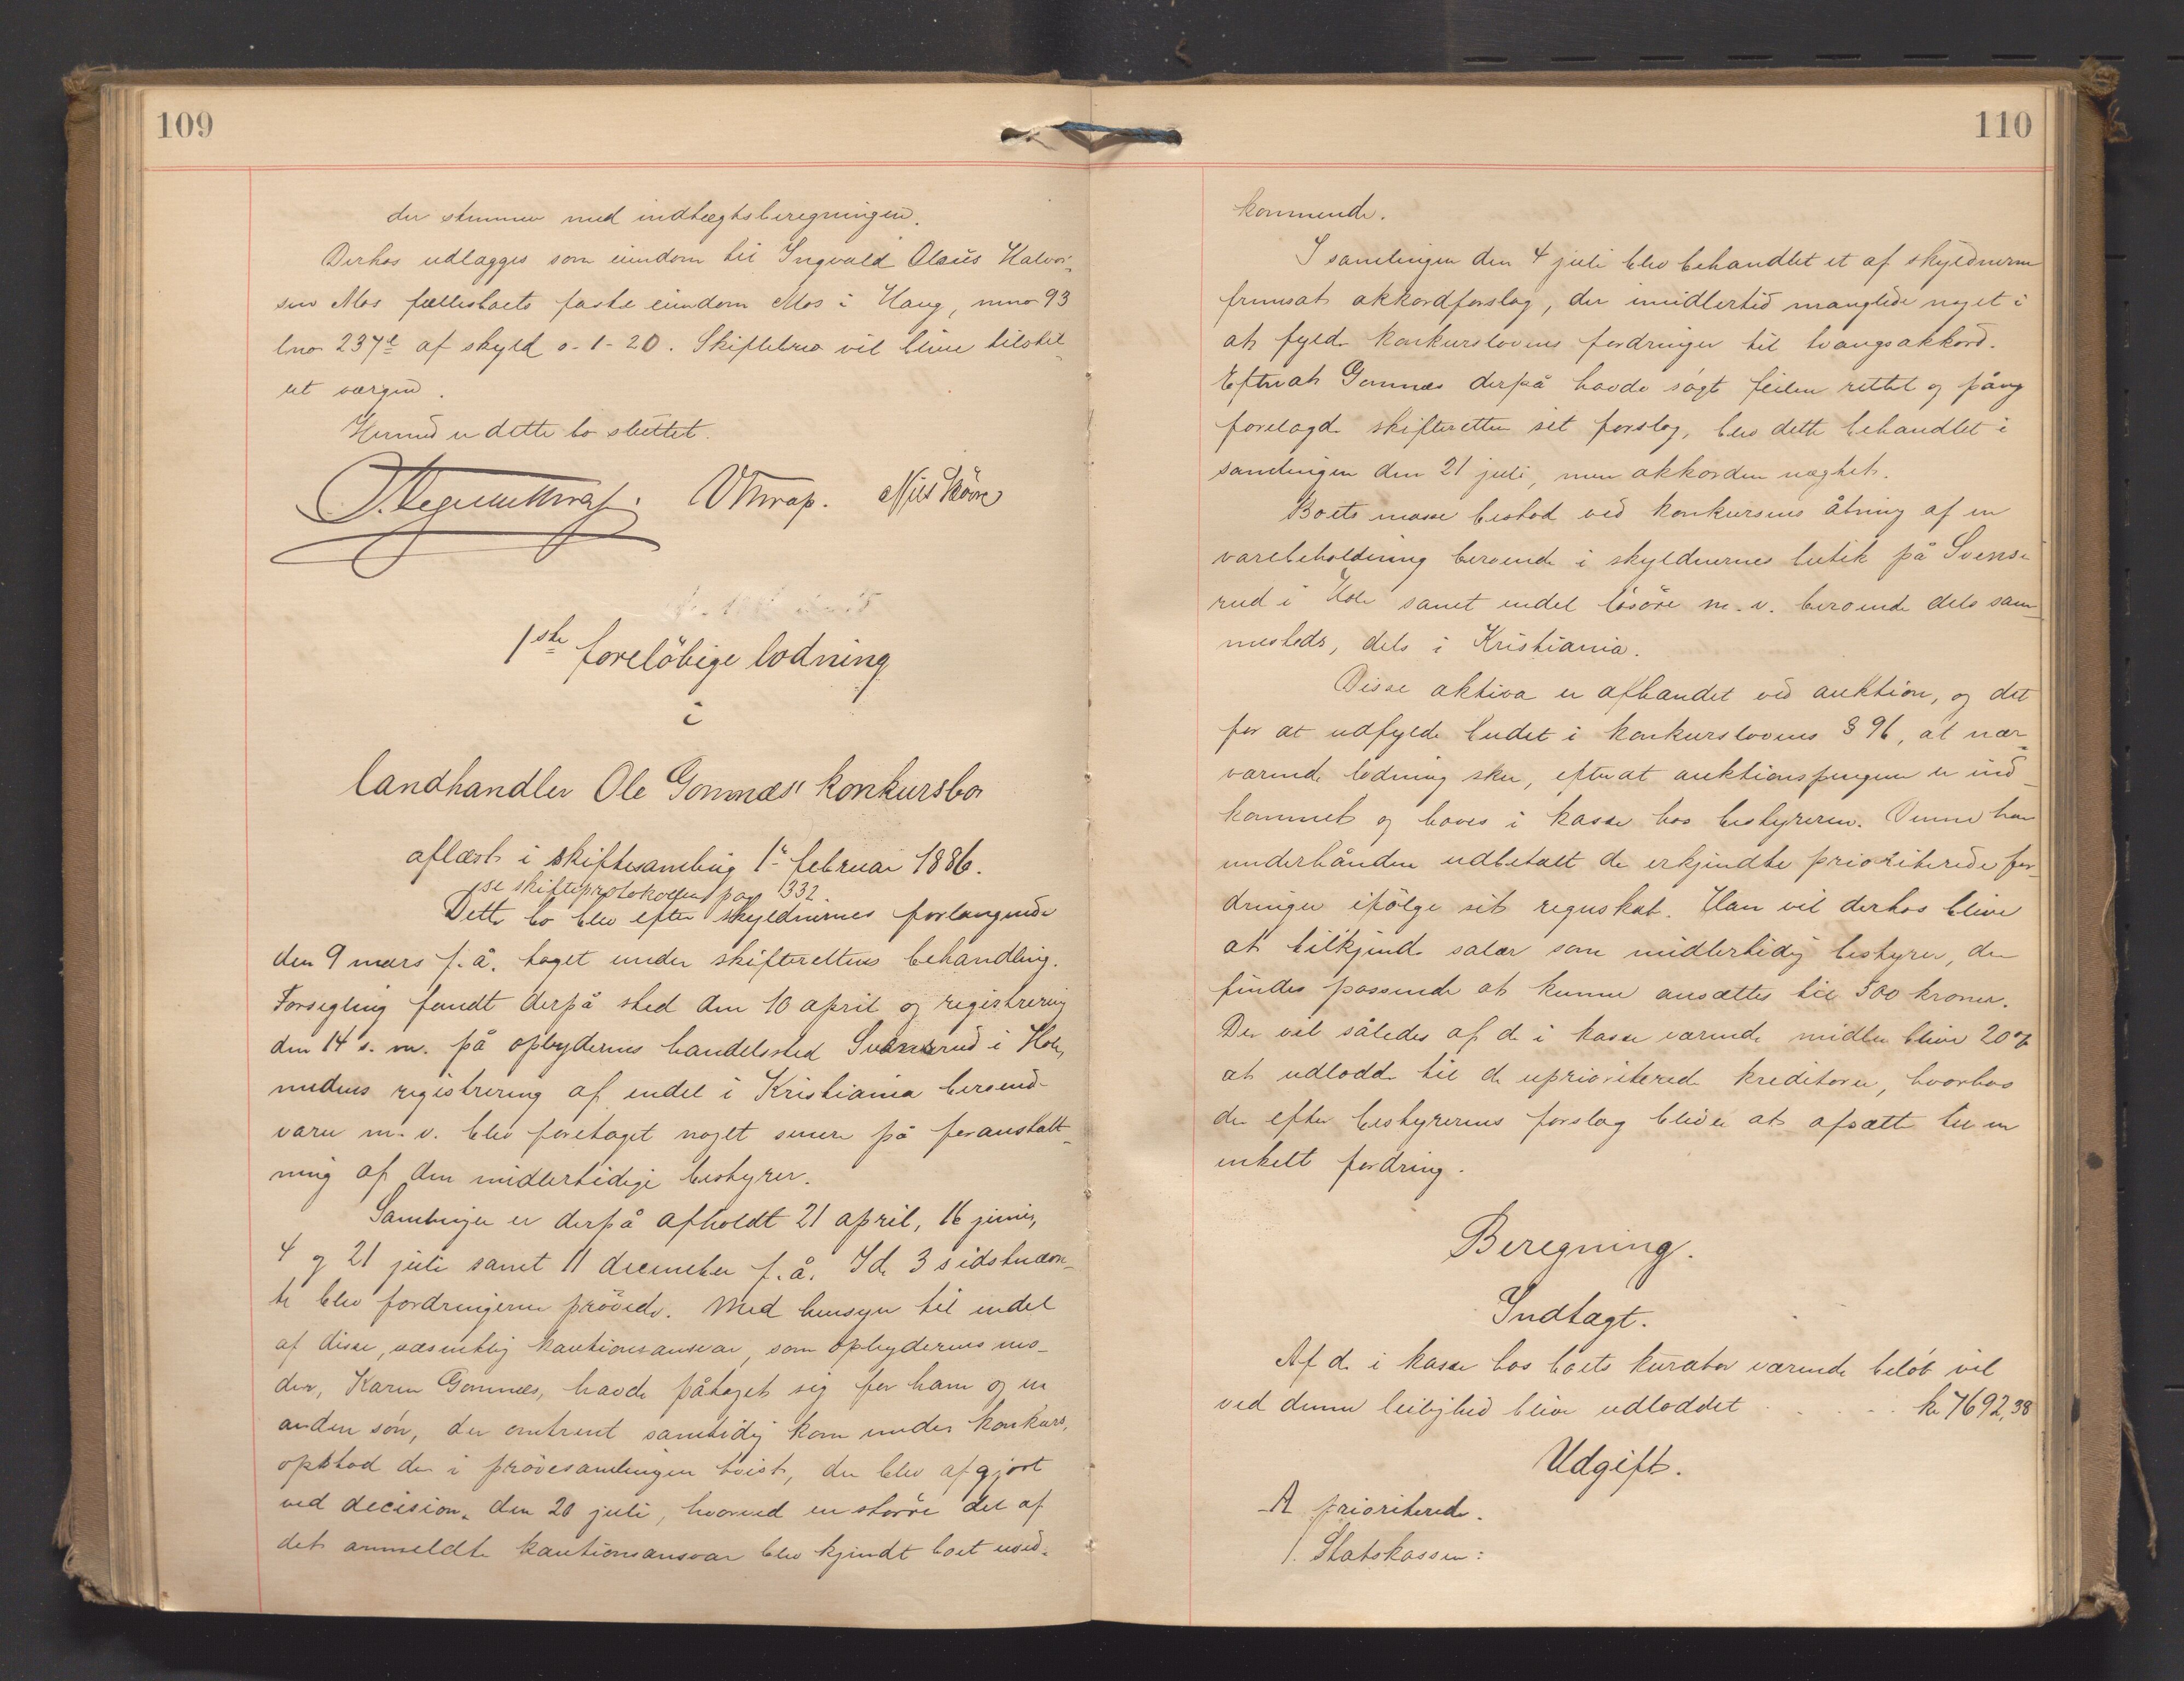 109
der stemmer med indtægtsberegningen.
Derhos udlægges som eiendom til Ingvald Olaus Halvor-
sen Mos fællesboets faste eiendom Mos i Haug, mno 93
lno 237e af skyld 0-1-20. Skiftebrev vil blive tilstil-
let værgen.
Hermed er dette bo sluttet.
Thrap. Nils
1ste foreløbige lodning
i
landhandler Ole Gomnæs' konkursbo
aflæst i skiftesamling 1ste februar 1886.
se skifteprotokollen pag 332.
Dette bo blev efter skyldnernes forlangende
den 9 mars f. å. taget under skifterettens behandling.
Forsegling fandt derpå sted den 10 april og registrering
den 14 s. m. på opbyderens handelssted Svenserud i Hole,
medens registrering af endel i Kristiania beroende
varer m. v. blev foretaget noget senere på foranstalt-
ning af den midlertidige bestyrer.
Samlinger er derpå afholdt 21 april, 16 juni,
4 og 21 juli samt 11 december f. å. I de 3 sidstnævn-
te blev fordringerne prøvede. Med hensyn til endel
af disse, væsentlig kautionsansvar, som opbyderens mo-
der, Karen Gomnæs, havde påtaget sig for ham og en
anden søn, der omtrent samtidig kom under konkurs,
opstod der i prøvesamlingen tvist, der blev afgjort
ved decision den 20 juli, hvorved en større del af
det anmeldte kautionsansvar blev kjendt boet uved-
110
kommende.
I samlingen den 4 juli blev behandlet et af skyldneren
fremsat akkordforslag, der imidlertid manglede noget i
at fylde konkurslovens fordringer til tvangsakkord.
Efterat Gomnæs derpå havde søgt feilen rettet og påny
forelagde skifteretten sit forslag, blev dette behandlet i
samlingen den 21 juli, men akkorden nægtet.
Boets masse bestod ved konkursens åbning af en
varebeholdning beroende i skyldnernes butik på Svense-
rud i Hole samt endel løsøre m. v. beroende dels sam-
mesteds, dels i Kristiania.
Disse aktiva er afhændet ved auktion, og det
for at udfylde budet i konkurslovens § 96, at nær-
værende lodning sker, efterat auktionspengene er ind-
kommet og haves i kasse hos bestyreren. Denne har
underhånden udbetalt de erkjendte prioriterede for-
dringer ifølge sit regnskab. Han vil derhos blive
at tilkjende salær som midlertidig bestyrer, der
findes passende at kunne ansættes til 500 kroner.
Der vil således af de i kasse værende midler blive 20%
at udlodde til de uprioriterede kreditorer, hvorhos
der efter bestyrerens forslag bliver at afsætte til en
enkelt fordring.
Beregning.
Indtægt.
Af de i kasse hos boets kurator værende beløb vil
ved denne leilighed blive udloddet . . . . kr 7692,38
Udgift.
A prioriterede.
1. Statskassen: